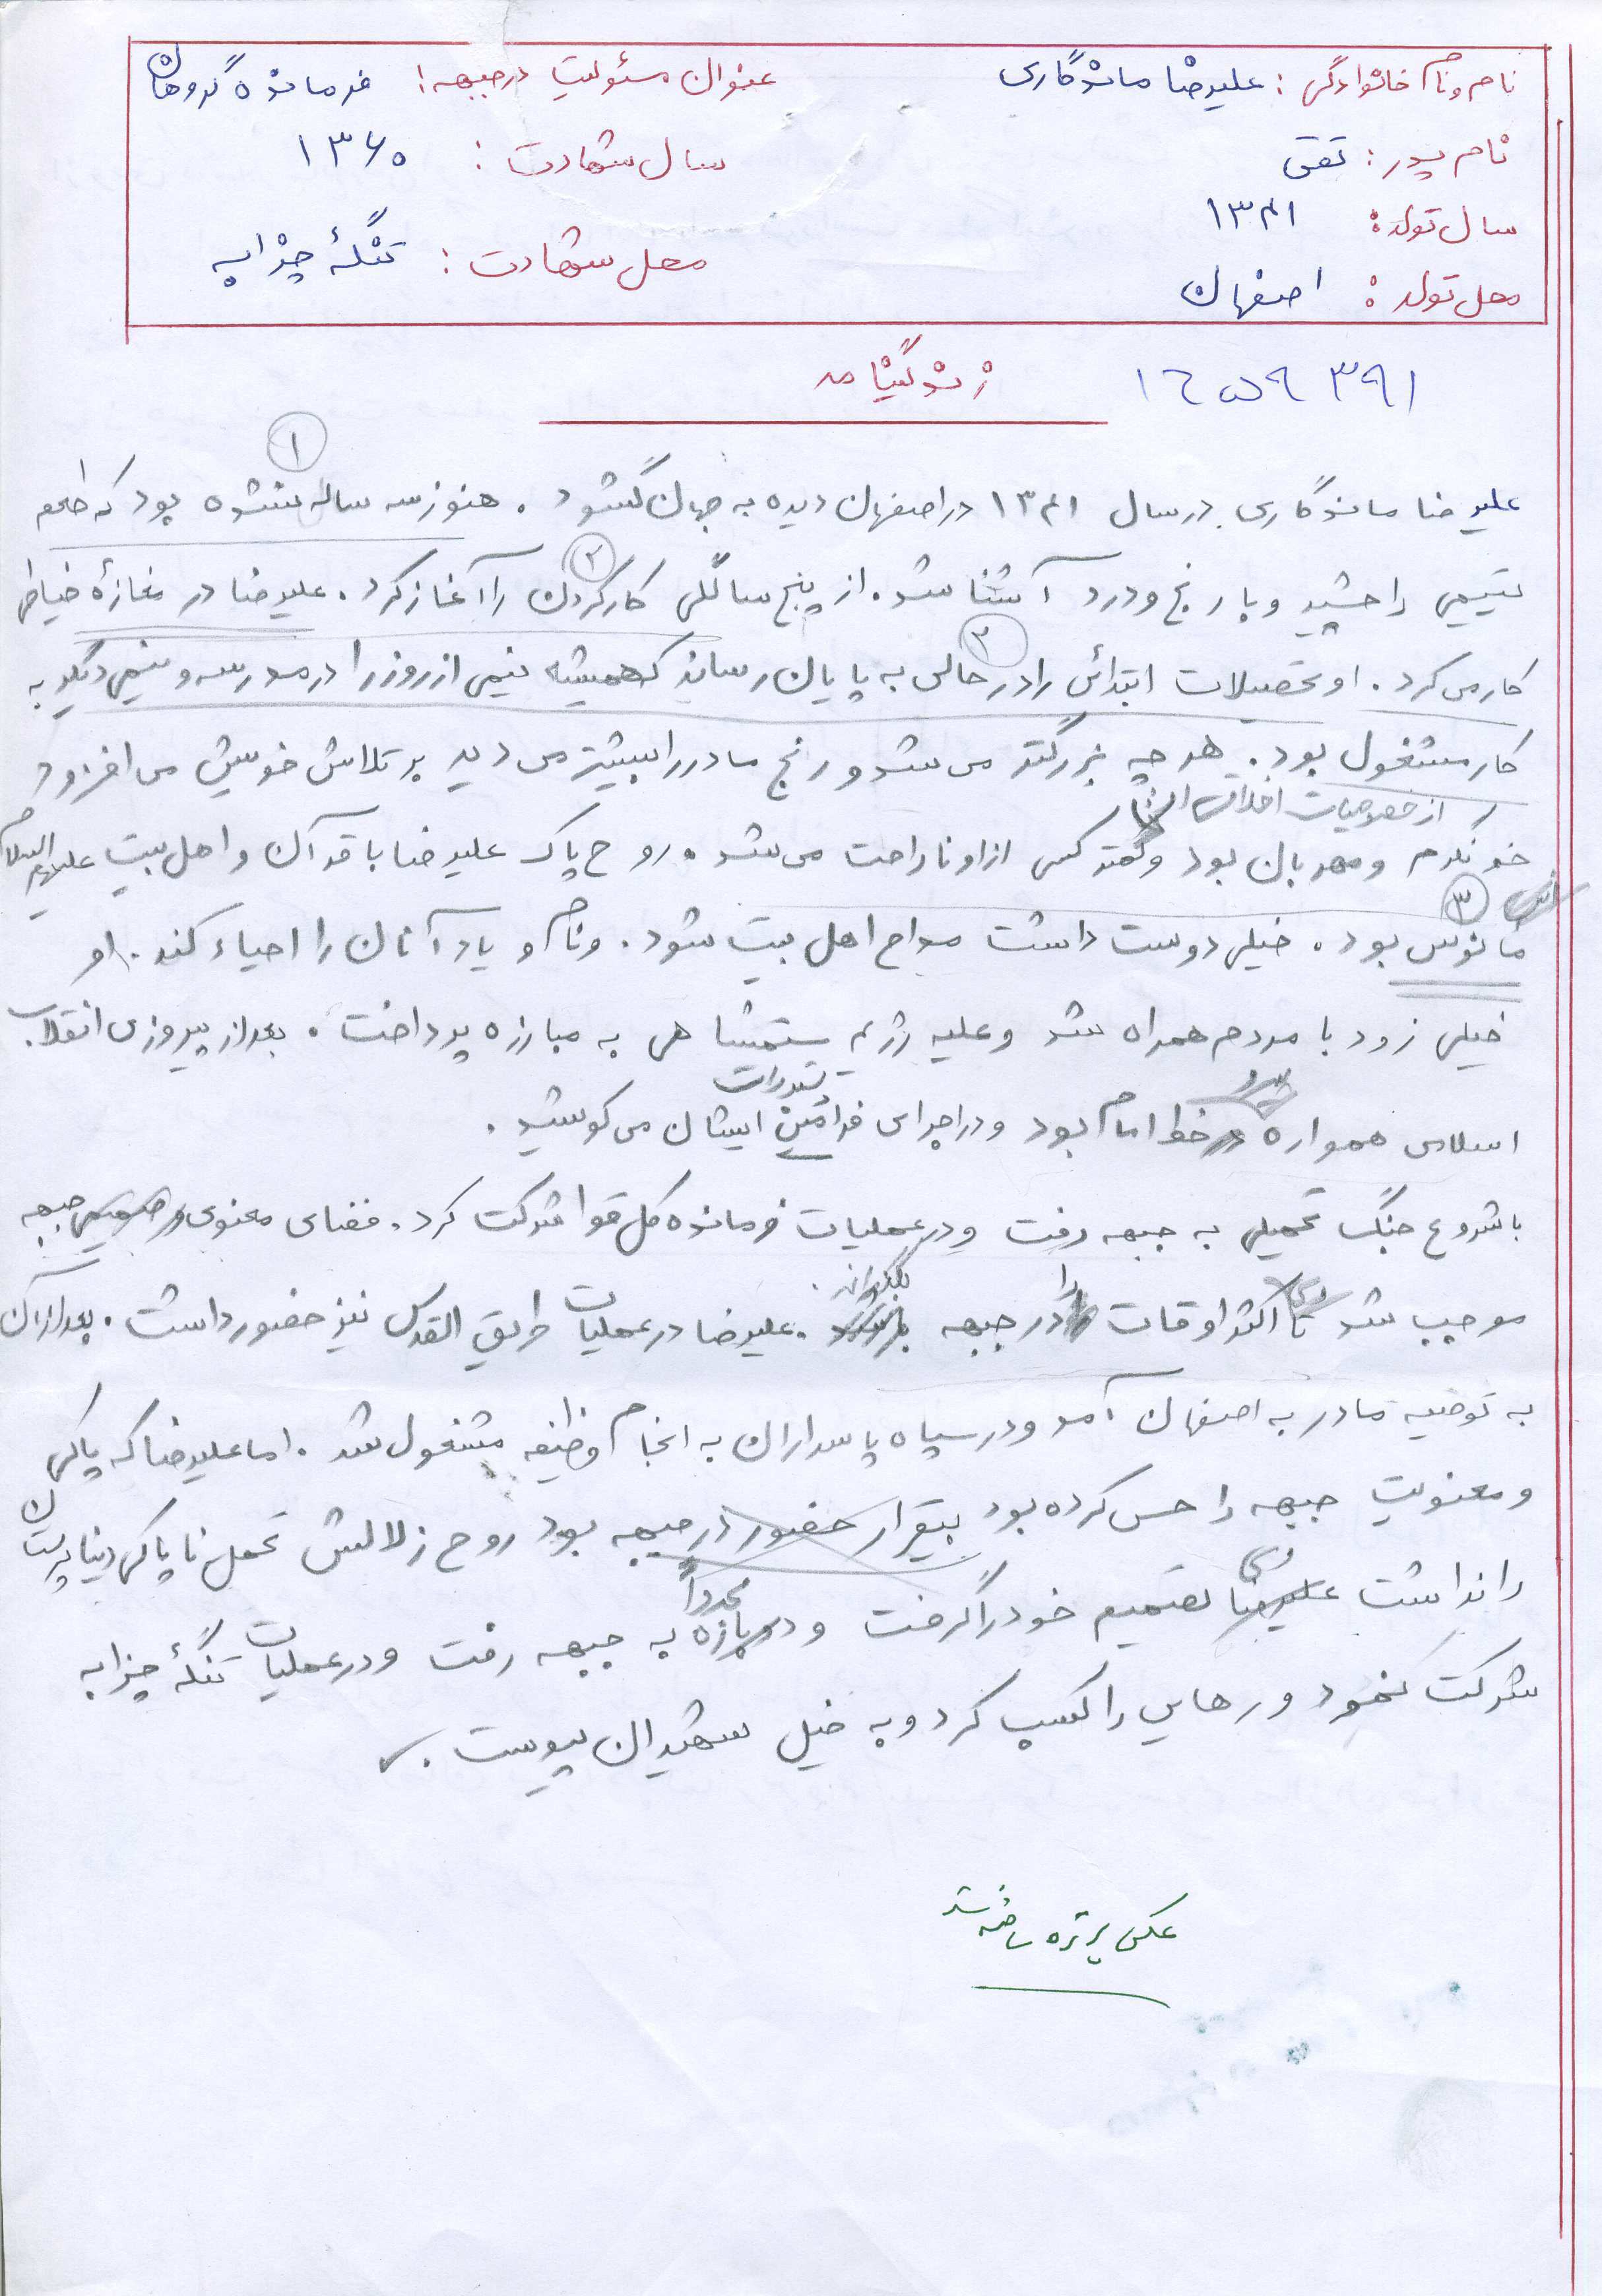 نام و نام خانوادگی : علیرضا ماندگاری
عنوان مسئولیت در جبهه : فرمانده گروهان
نام پدر : تقی
سال شهادت : ۱۳۶۰
سال تولد : ۱۳۴۱
محل شهادت : تنگهٔ چزابه
محل تولد : اصفهان
زندگینامه
۱۶۵۹۳۹۱
۱
علیرضا ماندگاری در سال ۱۳۴۱ در اصفهان دیده به جهان گشود . هنوز سه ساله نشده بود که طعم
۲
یتیمی را چشید و با رنج و درد آشنا شد . از پنج سالگی کار کردن را آغاز کرد . علیرضا در مغازهٔ خیاطی
۳
کار می کرد . او تحصیلات ابتدائی را در حالی به پایان رساند که همیشه نیمی از روز را در مدرسه و نیمی دیگر به
کار مشغول بود . هر چه بزرگتر می شد و رنج مادر را بیشتر می دید بر تلاش خویش می افزود
از خصوصیات اخلاقی
خونگرم و مهربان بود و کمتر کسی از او ناراحت می شد . روح پاک علیرضا با قرآن و اهل بیت علیهم السلام
۳
مأنوس بود . خیلی دوست داشت مداح اهل بیت شود . و نام و یاد آنان را احیاء کند . او
خیلی زود با مردم همراه شد و علیه رژیم ستمشاهی به مبارزه پرداخت . بعد از پیروزی انقلاب
اسلامی همواره در خط امام بود و در اجرای فرامین ایشان می کوشید .
با شروع جنگ تحمیلی به جبهه رفت و در عملیات فرمانده کل قوا شرکت کرد . فضای معنوی و صمیمی جبهه
موجب شد تا وی اکثر اوقات را در جبهه بگذراند . علیرضا در عملیات طریق القدس نیز حضور داشت . بعد از آن
به توصیه مادر به اصفهان آمد و در سپاه پاسداران به انجام وظیفه مشغول شد . اما علیرضا که پاکی
و معنویت جبهه را حس کرده بود بیقرار حضور در جبهه بود روح زلالش تحمل ناپاکی دنیا پرستان
را نداشت علیرضا وی تصمیم خود را گرفت و دوباره مجدداً به جبهه رفت و در عملیات تنگهٔ چزابه
شرکت نمود و رهایی را کسب کرد و به خیل شهیدان پیوست .
عکس پرتره ساخته شد